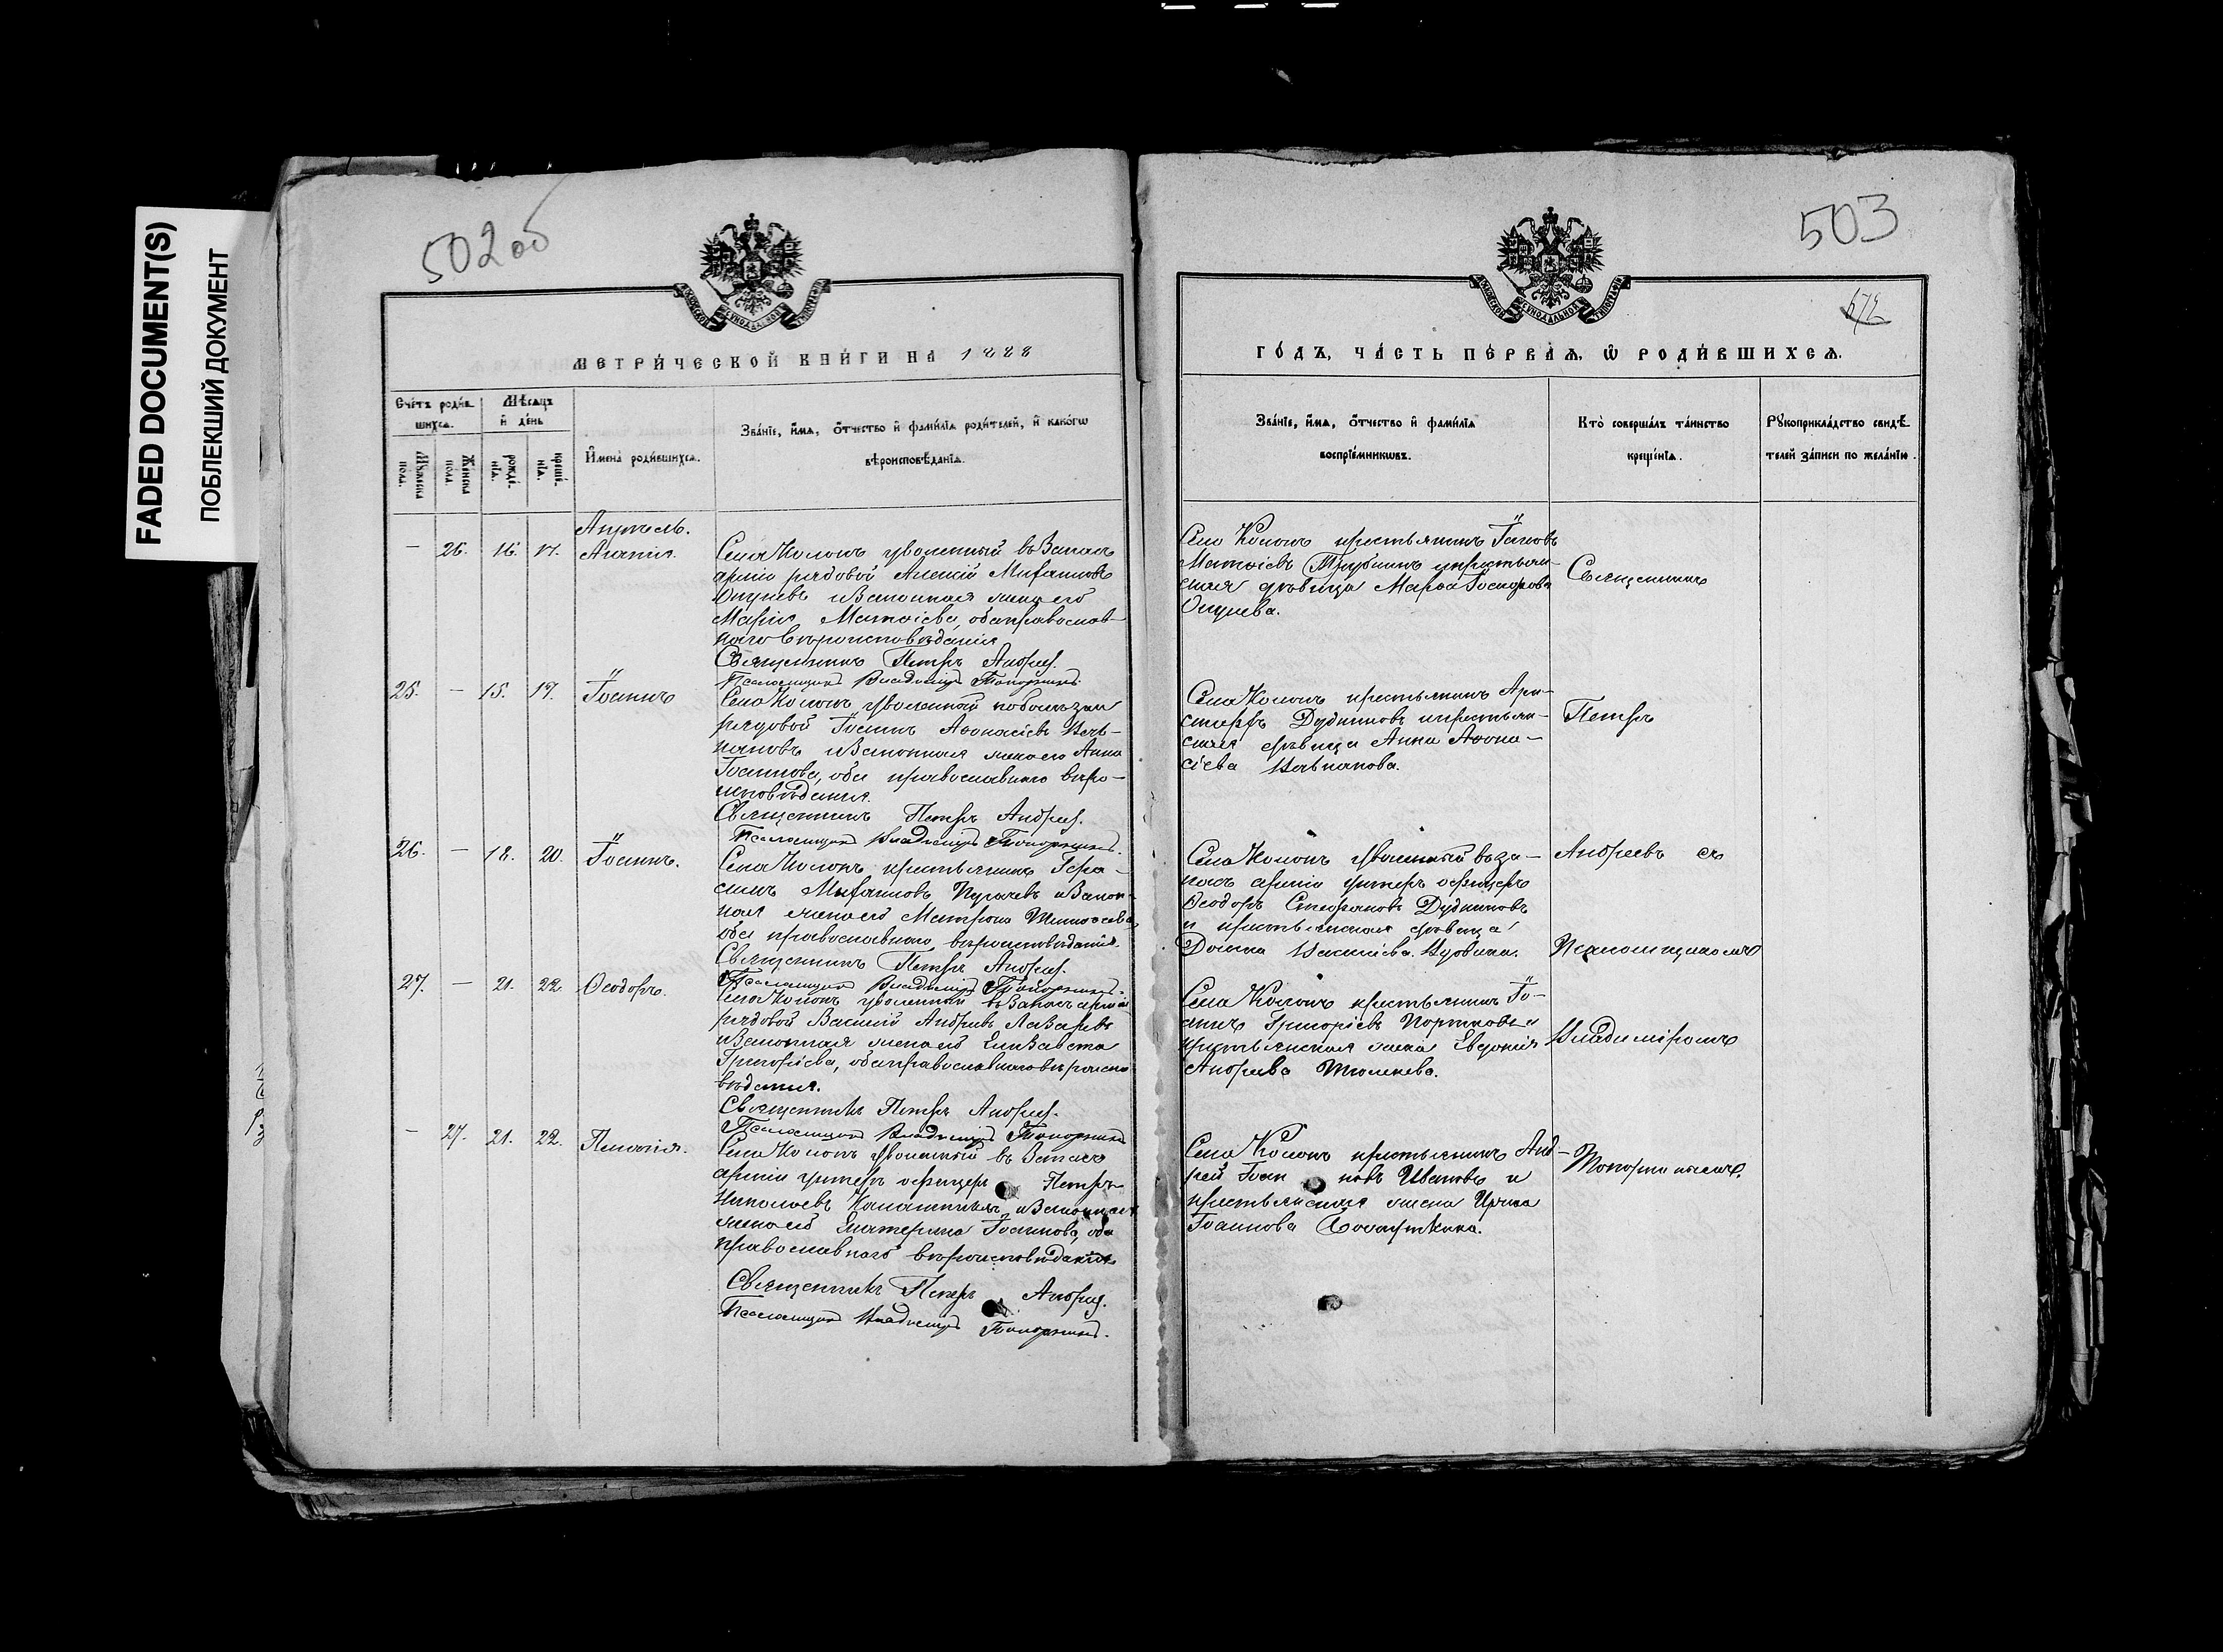 FADED DOCUMENT(S)
ПОБЛЕКШИЙ ДОКУМЕНТ
502 об
МЕТРИЧЕСКОЙ КНИГИ НА 1888
Счетъ родив-
шихся.
Мѣсяцъ
и день
Мужеска
пола.
Женска
пола
рожде-
нія.
креще-
нія.
Имена родившихся.
Званіе, имя, отчество и фамилія родителей, и какогѡ
вѣроисповѣданія.
Апрѣль.
— 26. 16. 17. Агапія.
Села Колокъ уволенный въ Запасъ
арміи рядовой Алексій
Окуневъ и Законная жена его
Марія Матѳіева, оба православ-
наго вѣроисповѣданія
Священникъ Петръ Андреев.
Псаломщикъ Владиміръ Топорнинъ.
25. — 15. 17. Іоаннъ
Села Колокъ уволенный
рядовой Іоаннъ Аѳонасіевъ
и Законная жена его Анна
Іоаннова, оба православнаго вѣро-
исповѣданія.
Священникъ Петръ Андреев.
Псаломщикъ Владиміръ Топорнинъ.
26. — 18. 20. Іоаннъ.
Села Колокъ крестьянинъ Гера-
симъ Пугачевъ и Закон-
ная жена его Матрона
оба православнаго вѣроисповѣданія.
Священникъ Петръ Андреев.
Псаломщикъ Владиміръ Топорнинъ.
27. — 21. 22. Ѳеодоръ.
Села Колокъ уволенный въ Запасъ арміи
рядовой Василій Андреевъ Лазаревъ
и Законная жена его Елизавета
Григоріева, оба православнаго вѣроиспо
вѣданія.
Священникъ Петръ Андреев.
Псаломщикъ Владиміръ Топорнинъ
— 27. 21. 22. Пелагія.
Села Колокъ уволенный въ Запасъ
арміи унтеръ офицеръ Петръ
Николаевъ и Законная
жена его Екатерина Іоаннова, оба
православнаго вѣроисповѣданія
Священникъ Петръ Андреев.
Псаломщикъ Владиміръ Топорнинъ.
503
672
ГОДЪ, ЧАСТЬ ПЕРВАЯ, Ѡ РОДИВШИХСЯ.
Званіе, имя, отчество и фамилія
воспріемникѡвъ.
Кто совершалъ таинство
крещенія.
Рукоприкладство свидѣ-
телей записи по желанію.
Села Колокъ крестьянинъ Іаковъ
Матѳіевъ Трубинъ и крестьян-
ская дѣвица
Окунева.
Села Колокъ крестьянинъ Ари-
стархъ Дудниковъ и крестьян-
ская дѣвица Анна Аѳона-
сіева
Села Колокъ уволенный въ за-
пасъ арміи унтеръ офицеръ
Ѳеодоръ Стефановъ Дудниковъ
и крестьянская дѣвица
Домна
Села Колокъ крестьянинъ Іо-
аннъ Григоріевъ Портновъ и
крестьянская жена Евдокія
Андреева Тюленева.
Села Колокъ крестьянинъ Анд-
рей Іоанновъ Ивановъ и
крестьянская жена Ирина
Іоаннова
Священникъ
Петръ
Андреевъ съ
Псаломщикомъ
Владиміромъ
Топорнинымъ.